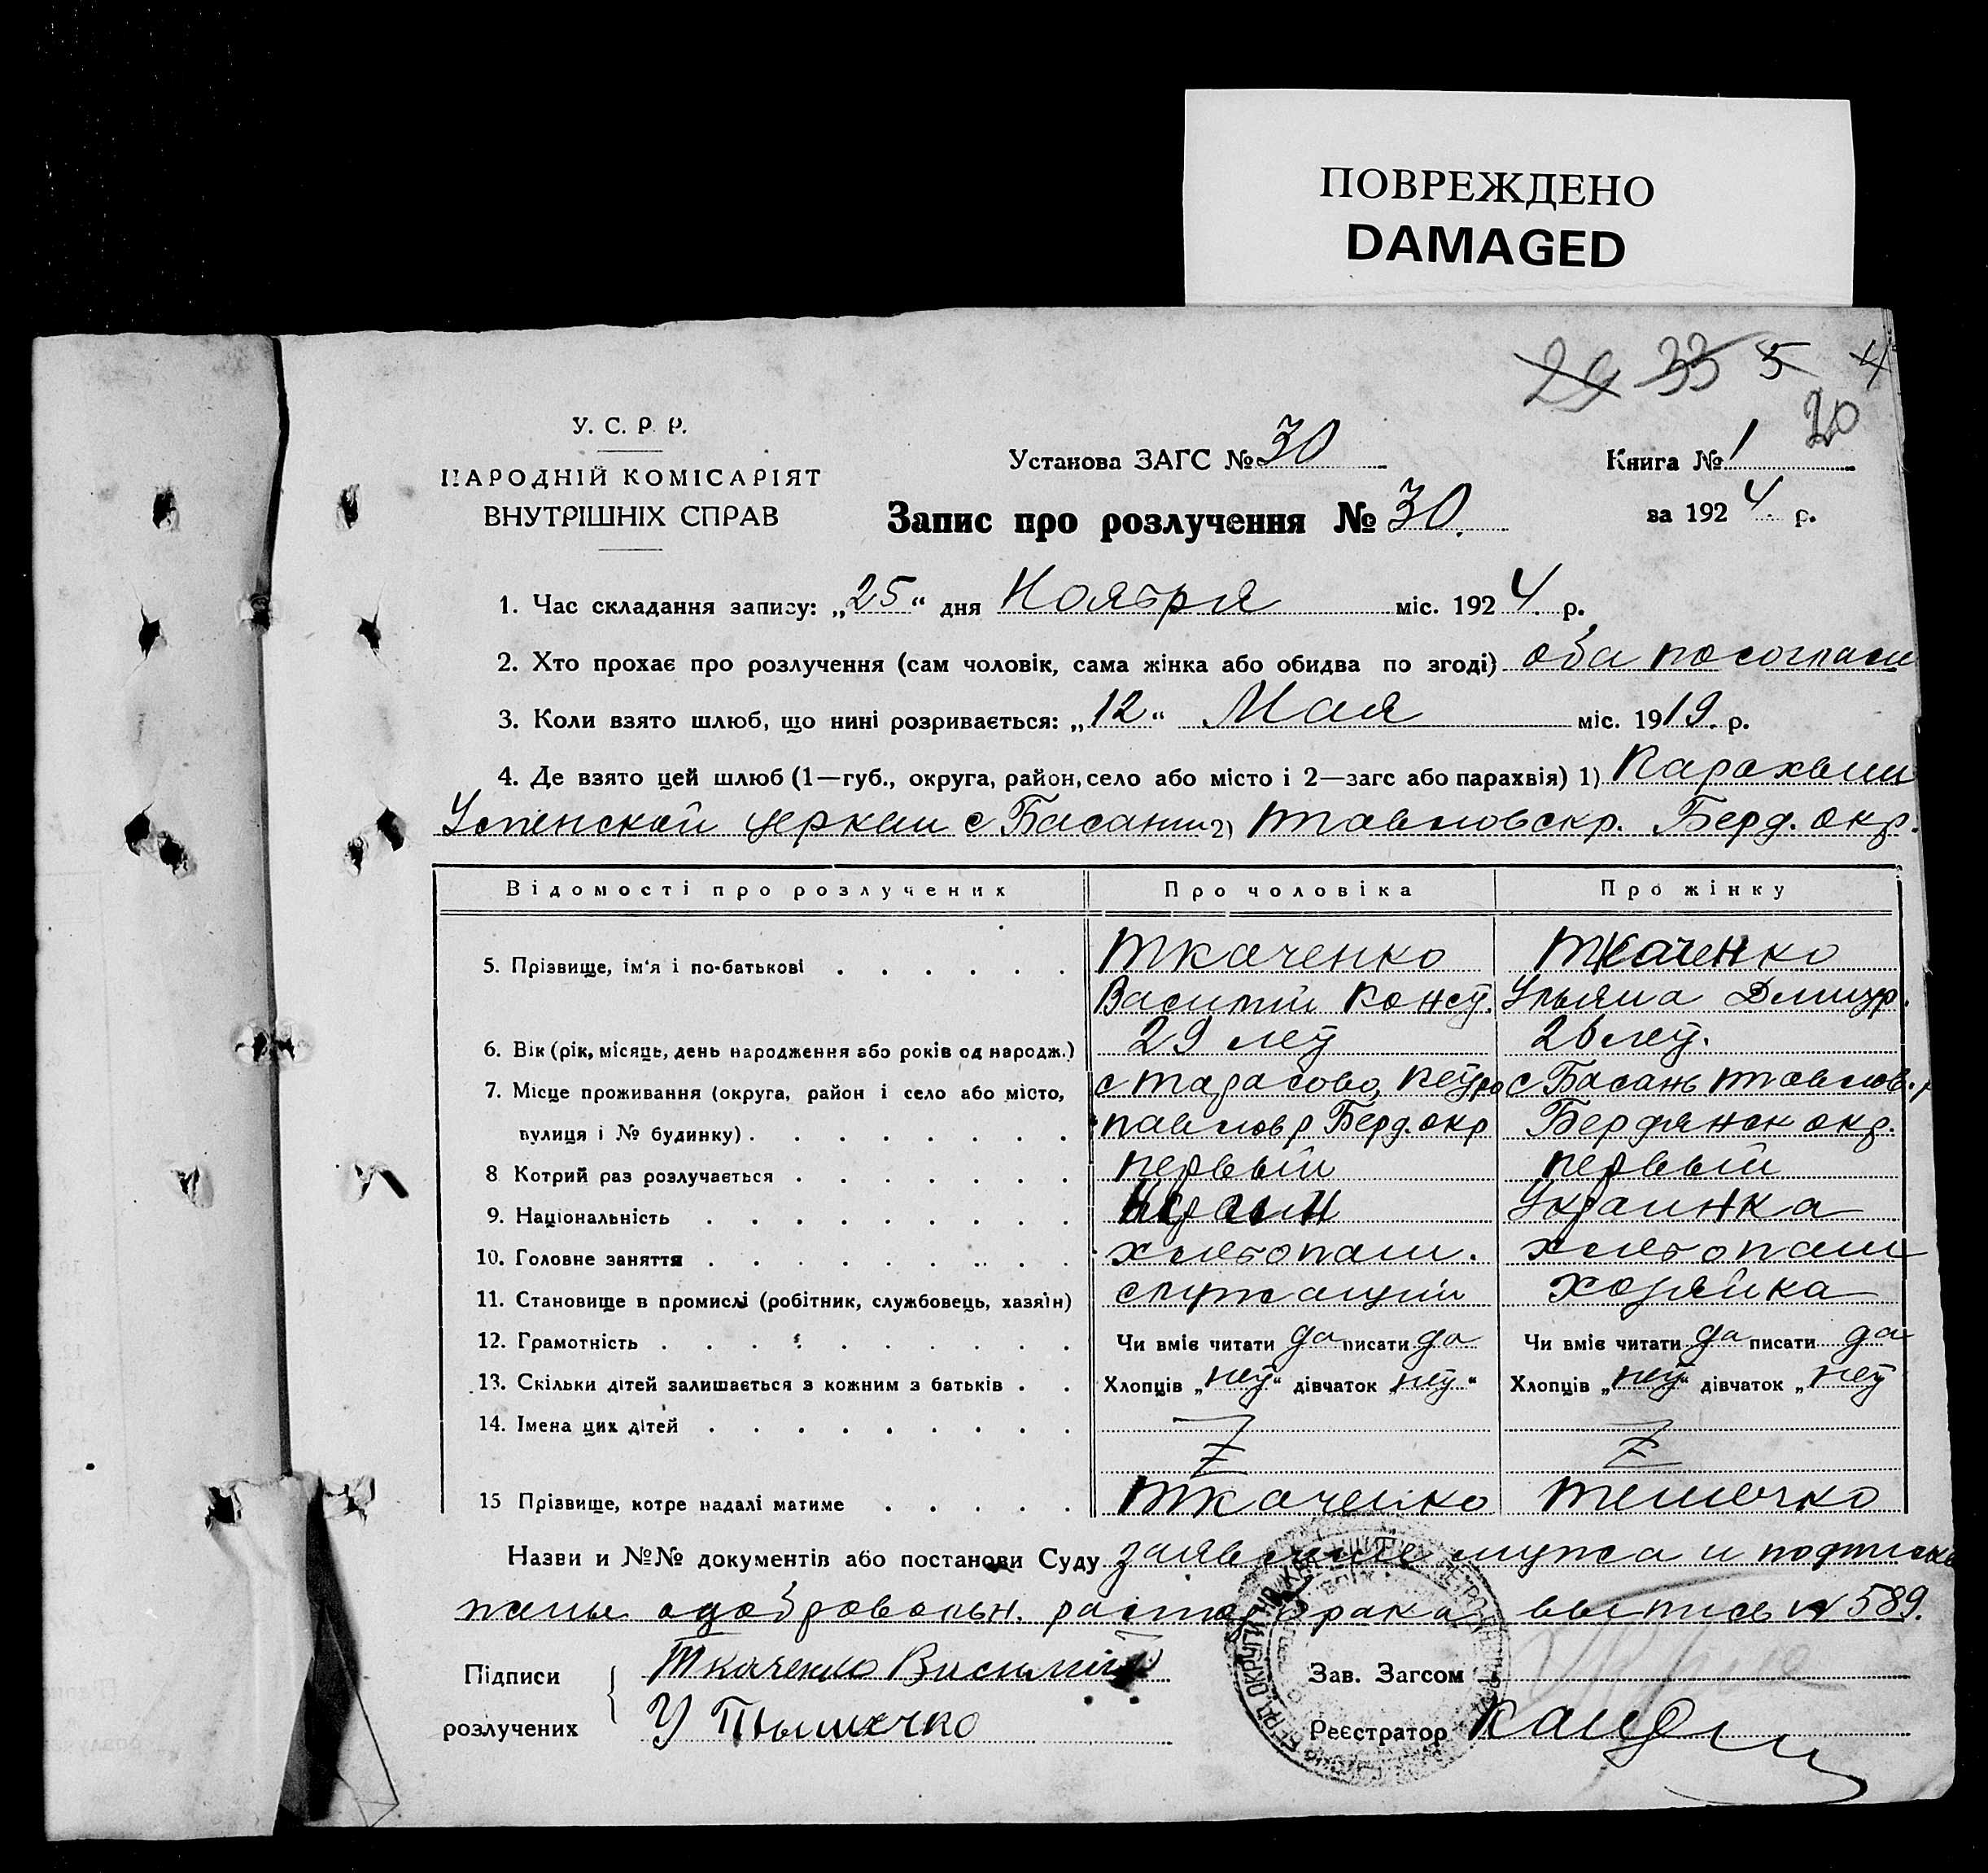 ПОВРЕЖДЕНО
DAMAGED
29 33 5 4
20
У. С. Р. Р.
НАРОДНІЙ КОМІСАРІЯТ
ВНУТРІШНІХ СПРАВ
Установа ЗАГС № 30
Книга № 1
Запис про розлучення № 30.
за 1924 р.
1. Час складання запису: „25“ дня Ноября міс. 1924 р.
2. Хто прохає про розлучення (сам чоловік, сама жінка або обидва по згоді) оба по согласи
3. Коли взято шлюб, що нині розривається: „12“ Мая міс. 1919. р.
4. Де взято цей шлюб (1—губ., округа, район, село або місто і 2—загс або парахвія) 1) Парахвии
Успенской церкви с Басани 2) Павловскр. Берд. окр.
Відомості про розлучених Про чоловіка Про жінку
5. Прізвище, ім'я і по-батькові Ткаченко Ткаченко
Василий Конст. Ульяна Дмитр.
6. Вік (рік, місяць, день народження або років од народж.) 29 лет 26 лет.
7. Місце проживання (округа, район і село або місто, с Тарасово, Петро с Басань Павлов. р
вулиця і № будинку) павлов р Берд. окр Бердянск окр.
8 Котрий раз розлучається первый первый
9. Національність Украин Украинка
10. Головне заняття хлебопаш. хлебопаш
11. Становище в промислі (робітник, службовець, хазяїн) служащий хозяйка
12. Грамотність Чи вміє читати да писати да Чи вміє читати да писати да
13. Скільки дітей залишається з кожним з батьків Хлопців „нет“ дівчаток „нет“ Хлопців „нет“ дівчаток „нет
14. Імена цих дітей
15 Прізвище, котре надалі матиме Ткаченко
Назви и №№ документів або постанови Суду заявление мужа и подписка
жены о добровольн. растор брака выпись № 589.
Підписи Ткаченко Василий Зав. Загсом
розлучених У Реєстратор